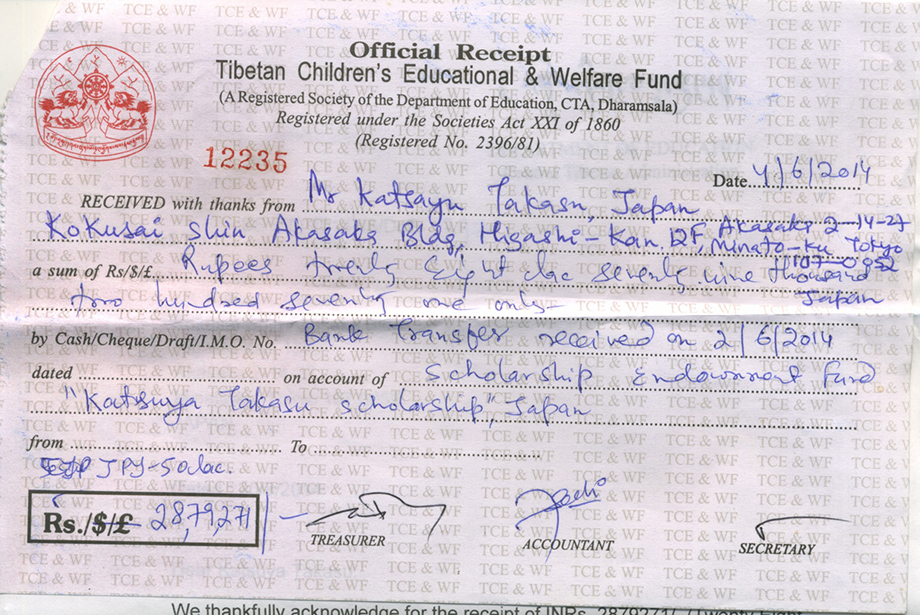 Official Receipt
Tibetan Children's Educational & Welfare Fund
(A Registered Society of the Department of Education, CTA, Dharamsala)
Registered under the Societies Act XXI of 1860
(Registered No. 2396/81)
12235
Date 4/6/2014
RECEIVED with thanks from Mr Katsayu Takasu, Japan
Kokusai Shin Akasaka Bldg, Higashi-Kan, 12F, Akasaka 2-14-27
Minato-ku Tokyo
107-0052
Japan
a sum of Rs/$/£ Rupees twenty eight lac seventy nine thousand
two hundred seventy one only-
by Cash/Cheque/Draft/I.M.O. No. Bank Transfer received on 2/6/2014
dated on account of Scholarship Endowment Fund
"Katsuya Takasu Scholarship", Japan
from To
JPY-50lac.
Rs./$/£ 28,79,271/-
TREASURER
ACCOUNTANT
SECRETARY
We thankfully acknowledge for the receipt of INRs. 2879271/-